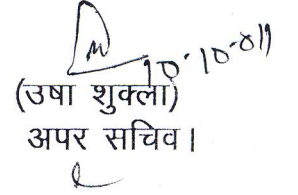 10-10-011
(उषा शुक्ला)
अपर सचिव।